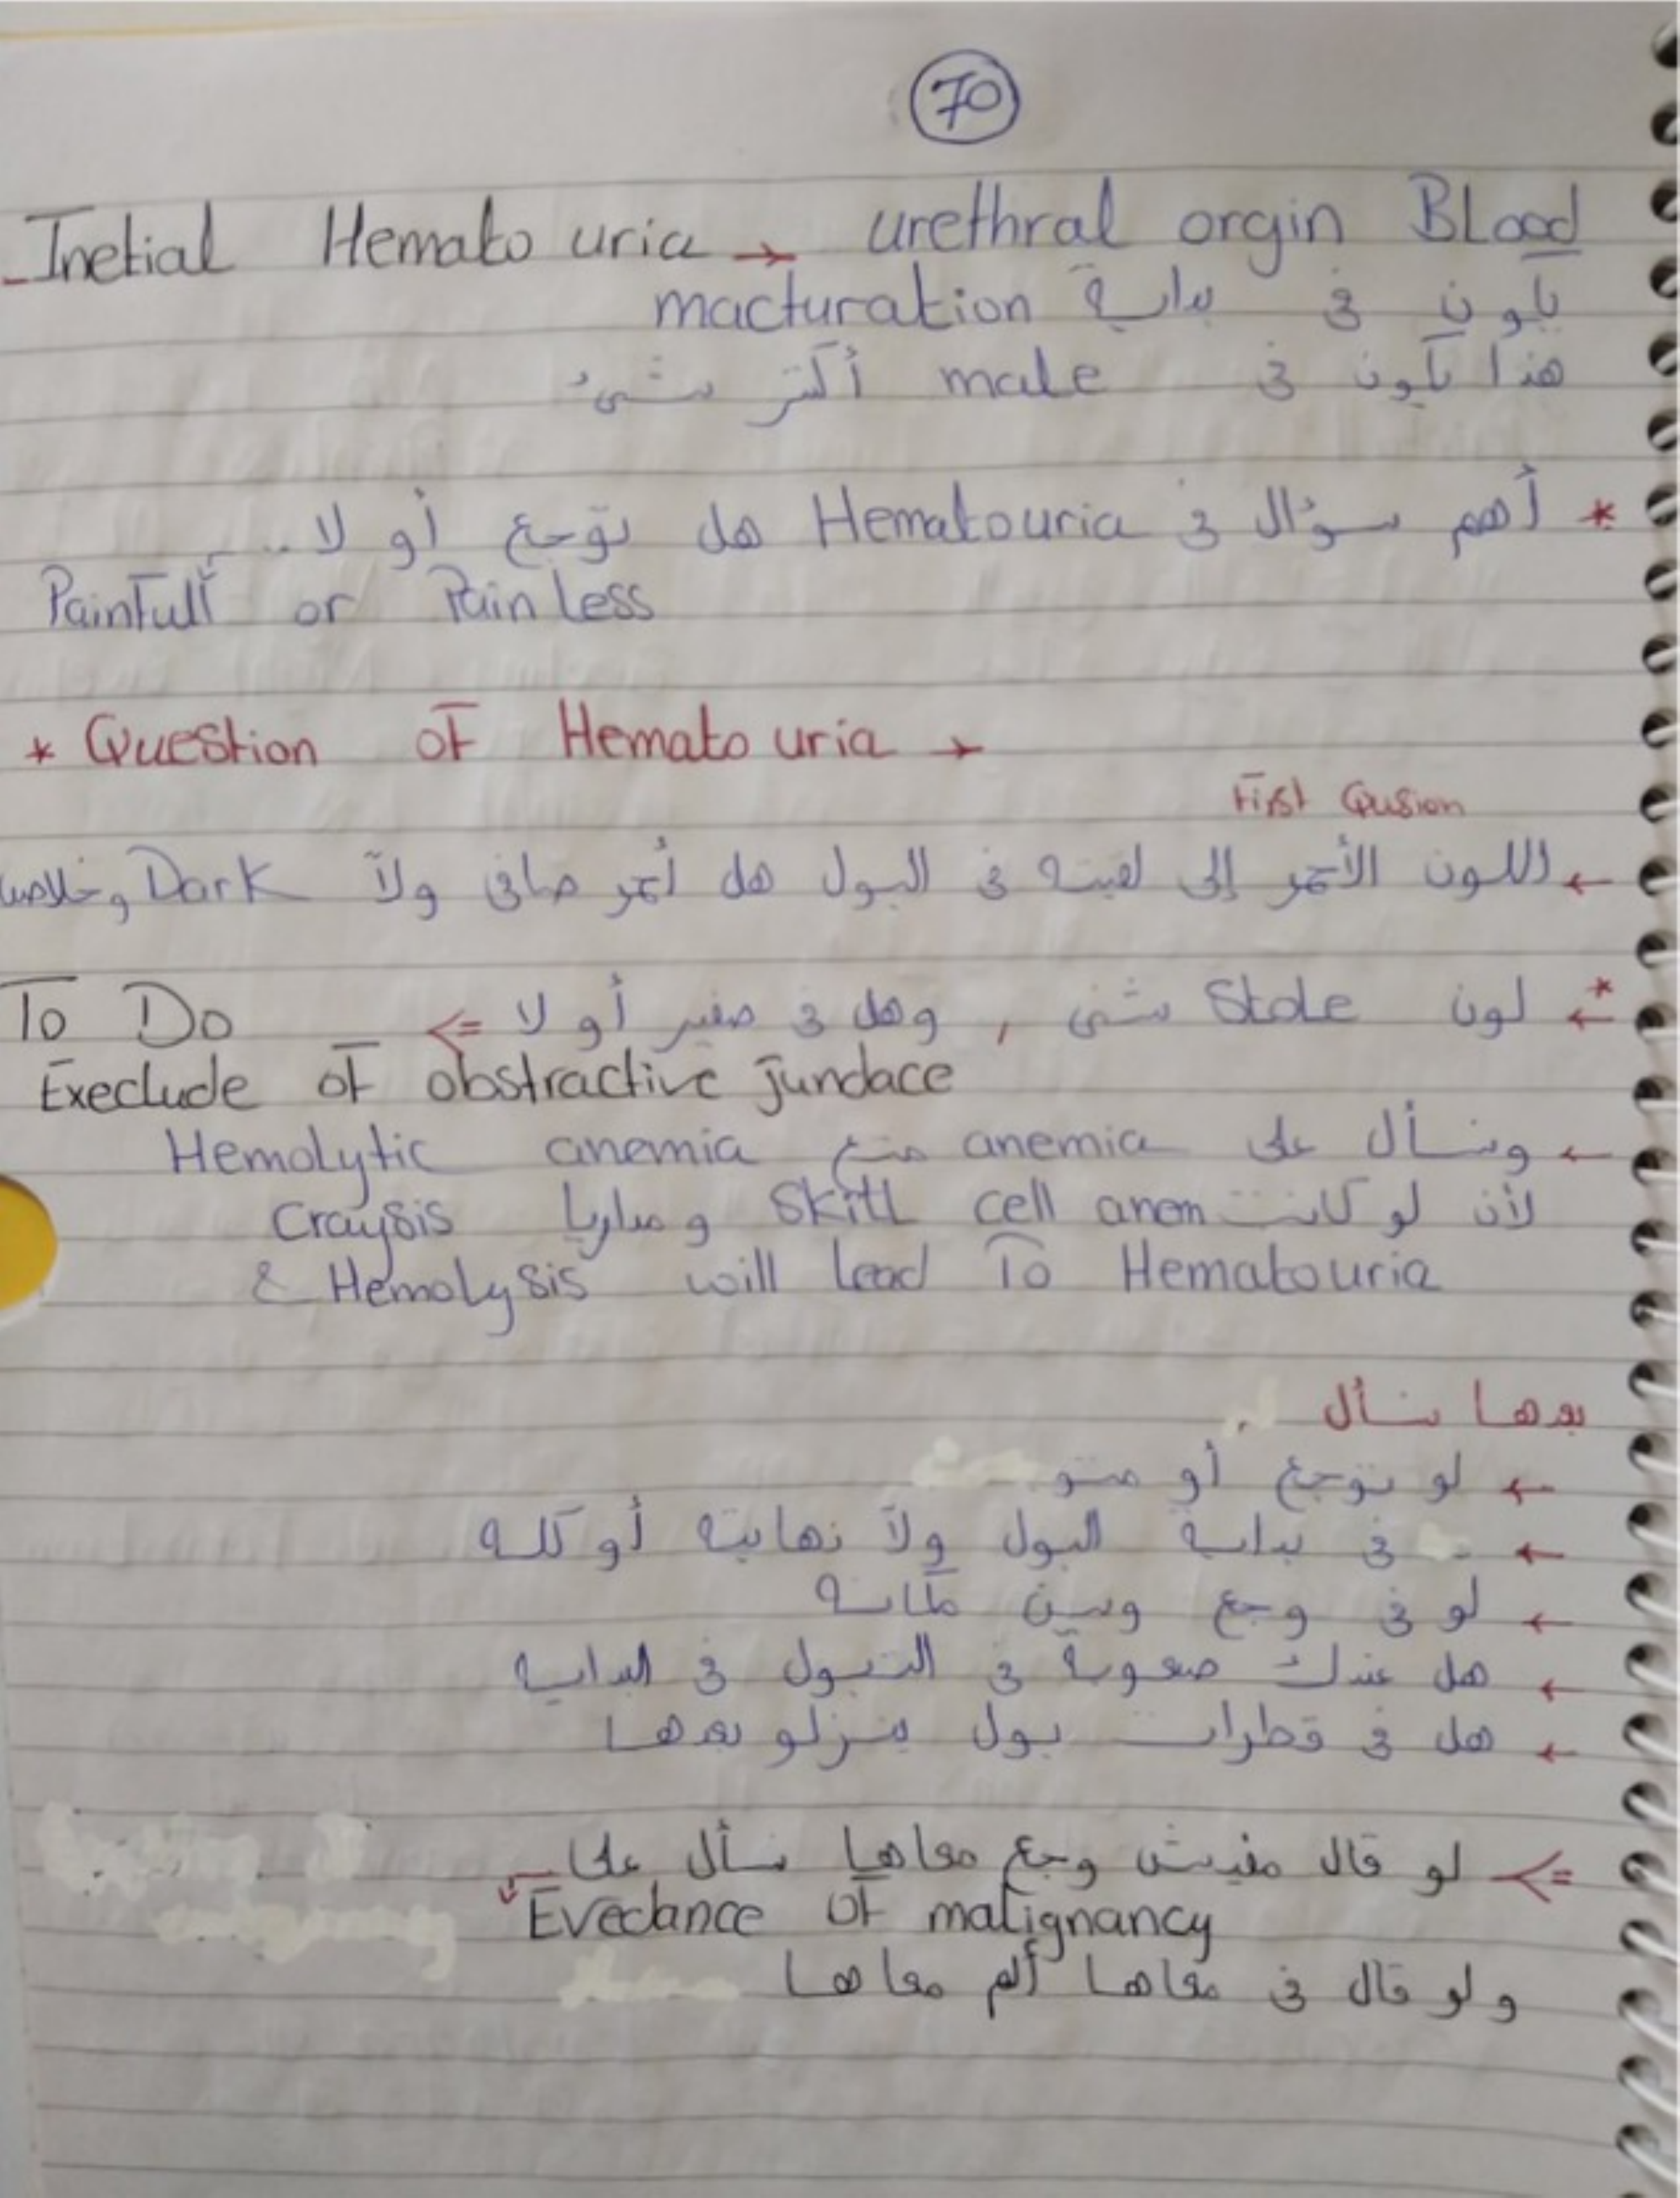 70
Inetial Hemato uria → urethral orgin BLood
بكون في بداية macturation
هذا بكون في male أكتر شيء
* أهم سؤال في Hematouria هل توجع أو لا ..
Painfull or Pain less
* Question of Hemato uria →
First Qusion
← اللون الأحمر إلى لقيته في البول هل أحمر صافى ولا Dark وخلاص
*← لون Stole شنى , وهل في صفير أو لا => To Do
Execlude of obstractive jundace
← ونسأل على anemia منع Hemolytic anemia
لأن لو كانت skill cell anem وملاريا Craysis
& Hemolysis will lead To Hematouria
بعدها نسأل
← لو توجع أو
← في بداية البول ولا نهايته أو كله
← لو في وجع وين مكانه
← هل عندك صعوبة في التبول في البداية
← هل في قطرات بول ينزلو بعدها
=> لو قال مفيش وجع معاها نسأل على
Evedance of malignancy
ولو قال في معاها ألم معاها